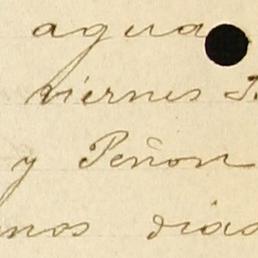 agua
viernes
y Peñon
nos dias